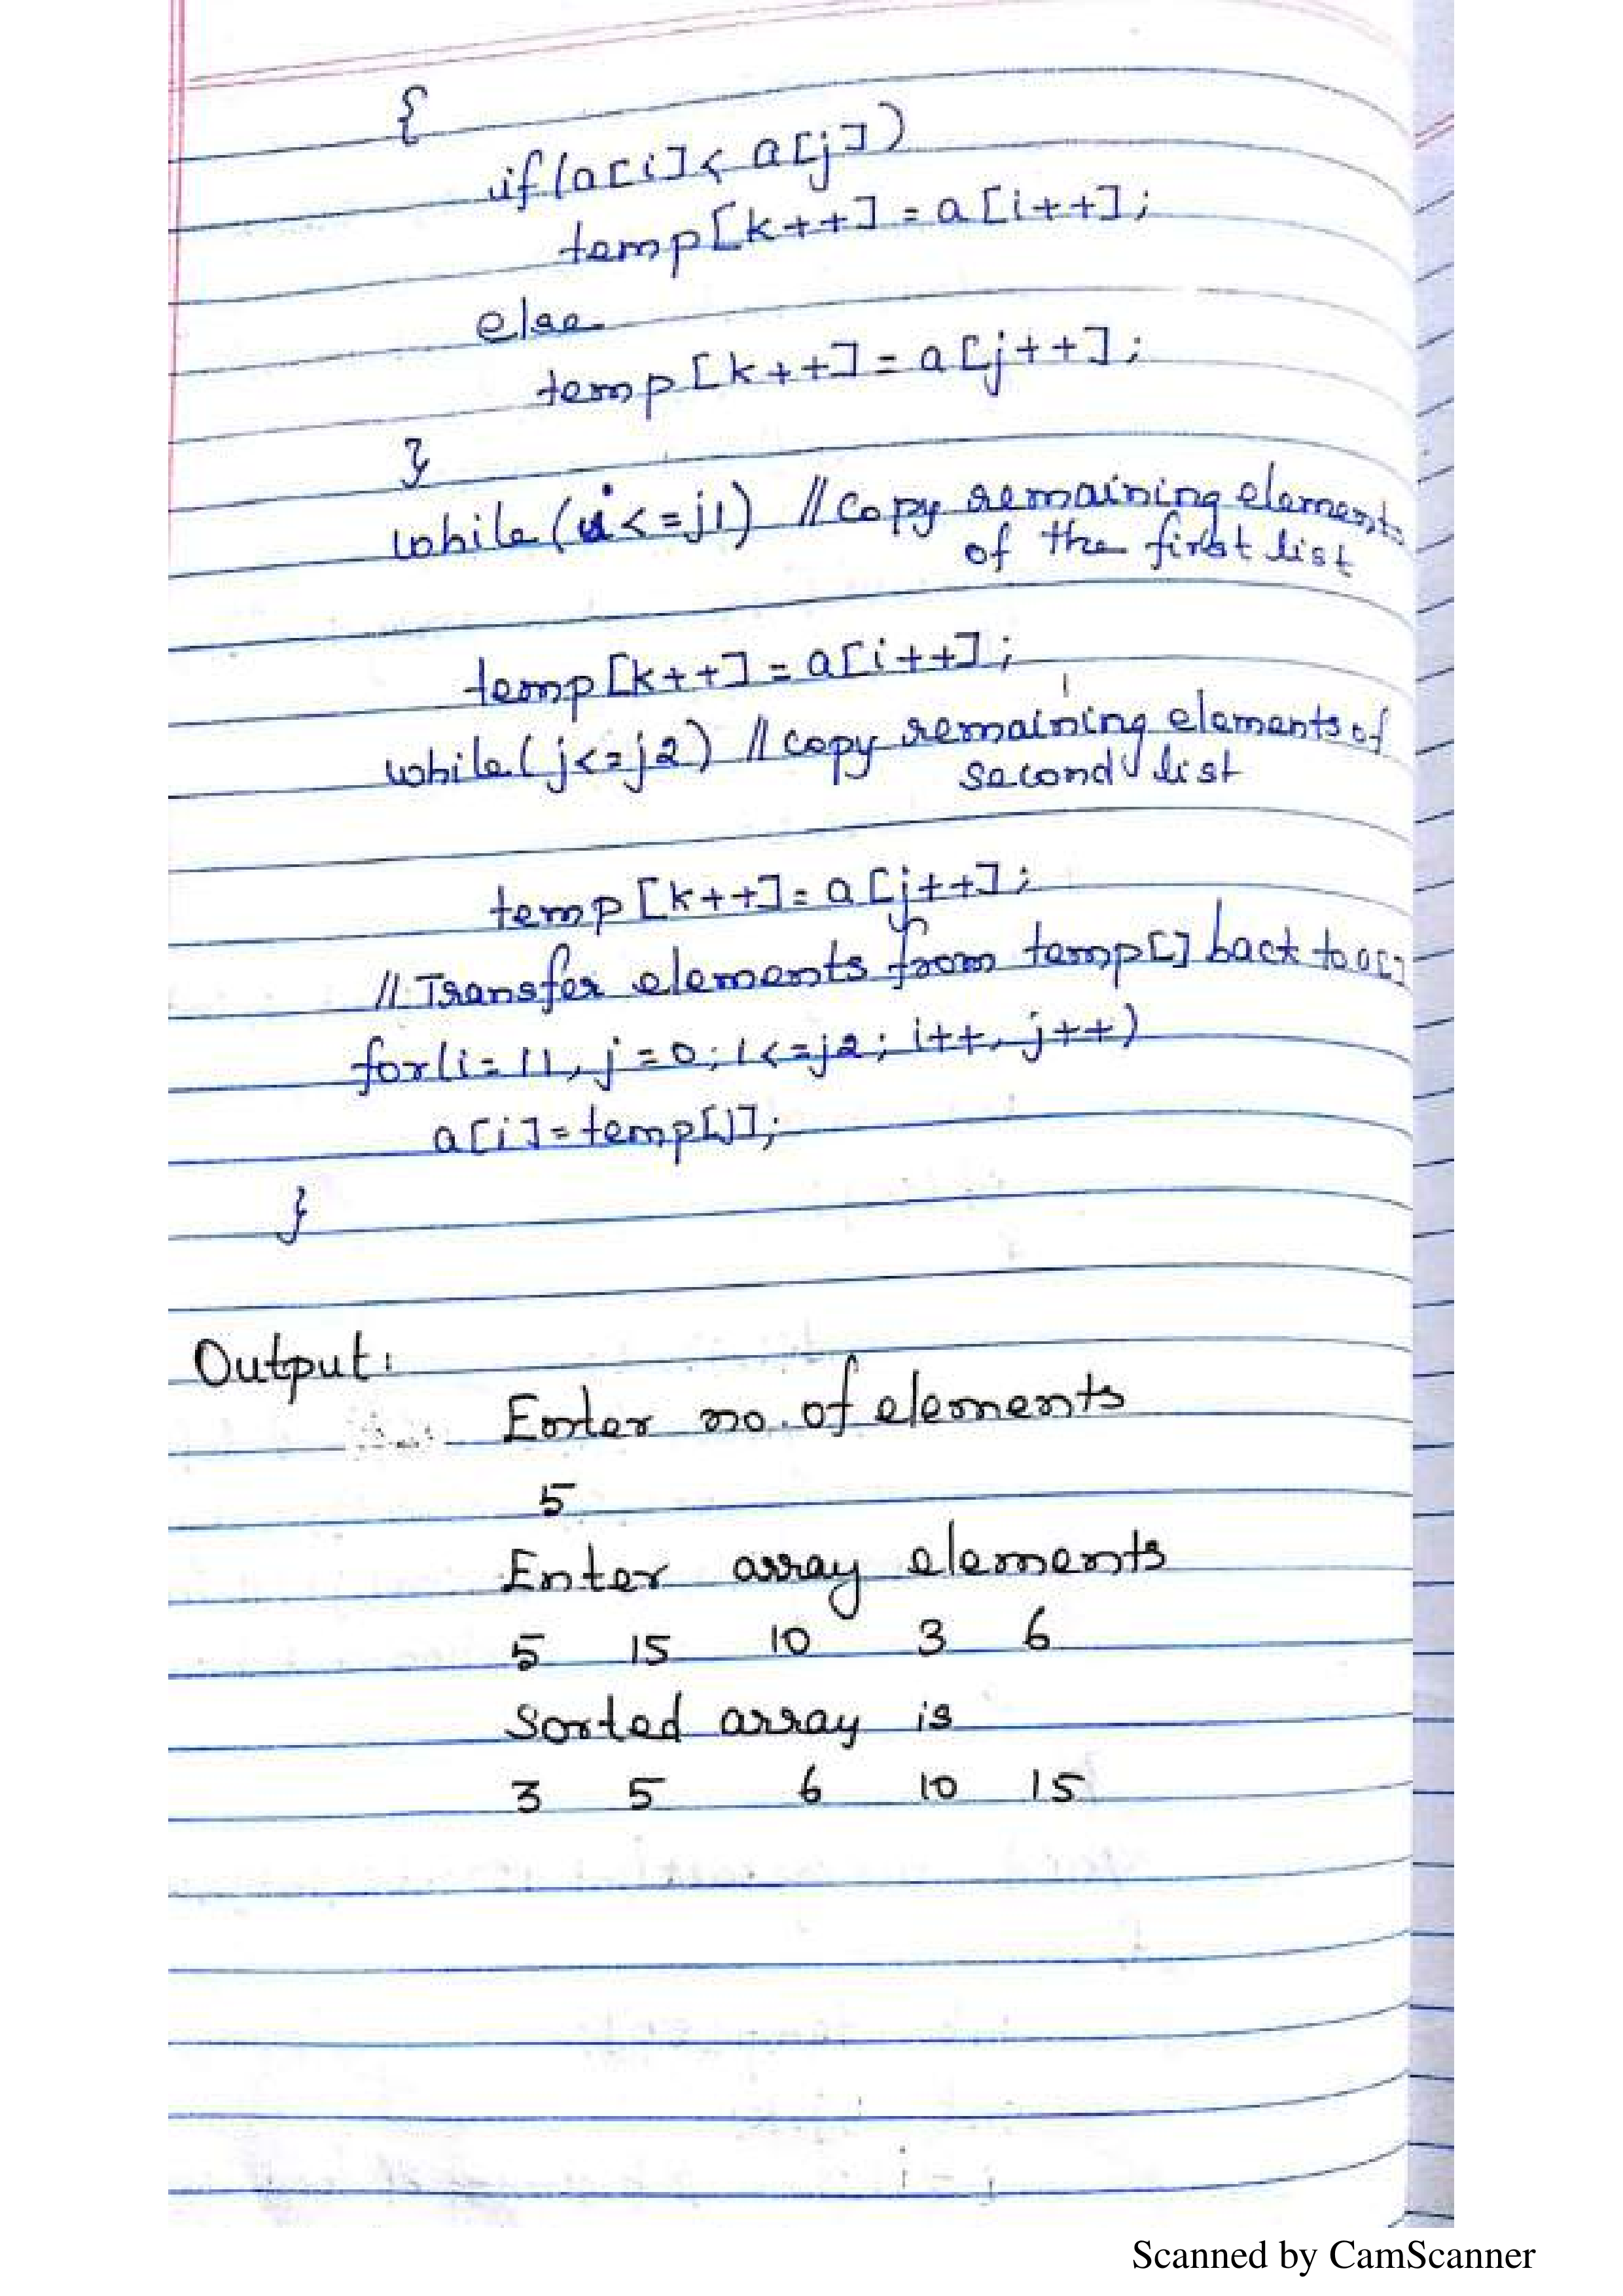 {
if(a[i]< a[j])
temp[k++]=a[i++];
else
temp[k++]=a[j++];
}
while(i<=j1) //copy remaining elements
of the first list
temp[k++]=a[i++];
while(j<=j2) //copy remaining elements of
second list
temp[k++]=a[j++];
//Transfer elements from temp[] back to a[]
for(i=i1, j=0; i<=j2; i++, j++)
a[i]=temp[j];
}
Output:
Enter no. of elements
5
Enter array elements
5 15 10 3 6
Sorted array is
3 5 6 10 15
Scanned by CamScanner